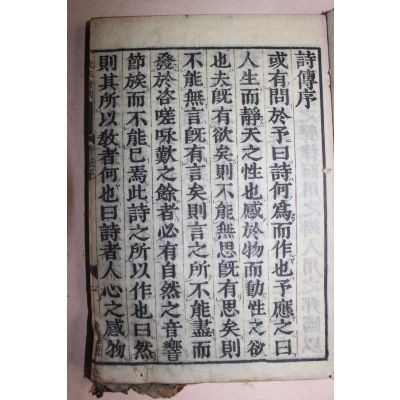 詩傳序
或有問於予曰詩何爲而作也予應之曰
人生而靜天之性也感於物而動性之欲
也夫旣有欲矣則不能無思旣有思矣則
不能無言旣有言矣則言之所不能盡而
發於咨嗟咏歎之餘者必有自然之音響
節族而不能已焉此詩之所以作也曰然
則其所以敎者何也曰詩者人心之感物